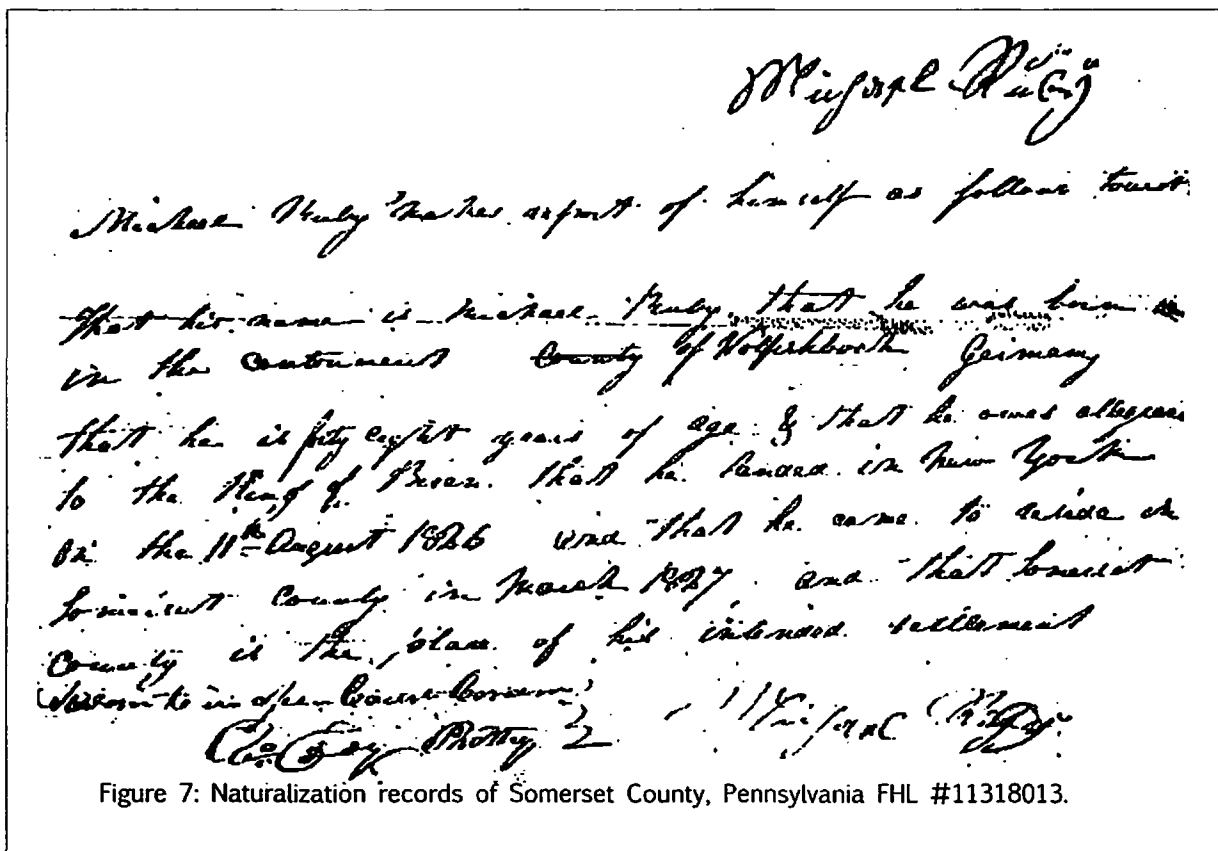 Michael Ruby
Michael Ruby makes report of himself as follows towit
That his name is Michael Ruby that he was born
in the contonment County of Germany
that he is fifty eight years of age & that he owes allegiance
to the King of that he landed in New York
on the 11th August 1826 and that he came to reside in
Somerset County in March 1827 and that Somerset
County is the place of his intended settlement
Sworn to in open Court Coram
Michael Ruby
Figure 7: Naturalization records of Somerset County, Pennsylvania FHL #11318013.